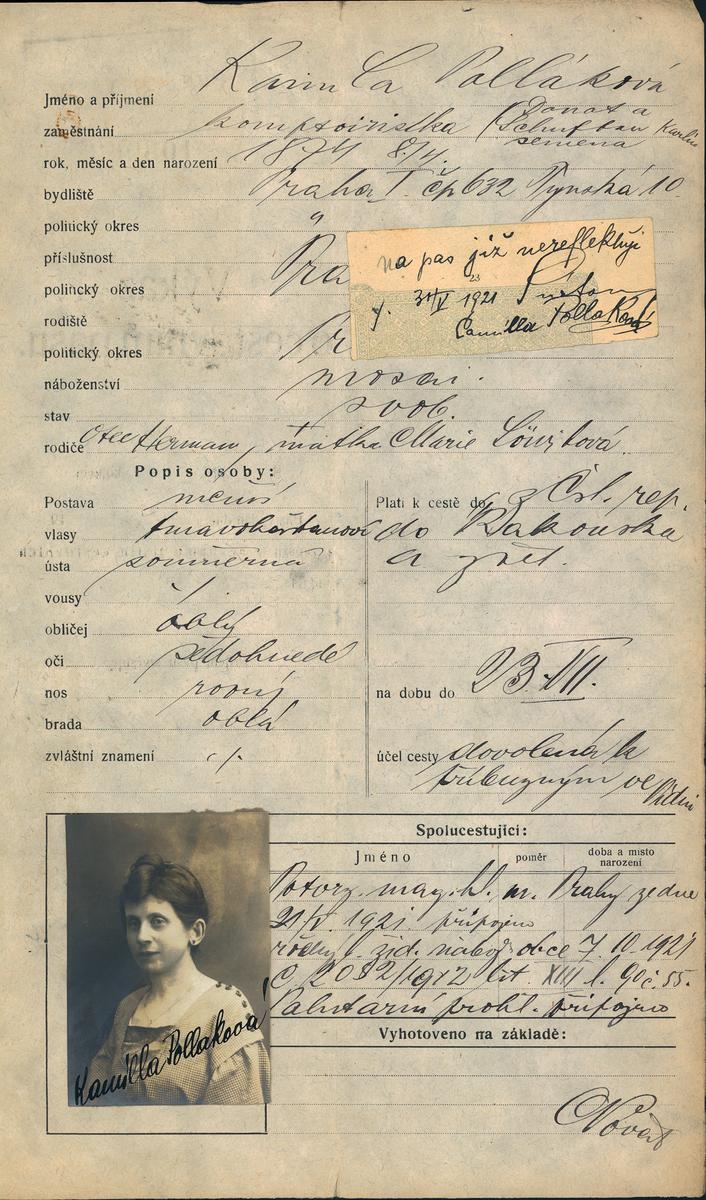 Jméno a příjmení Kamilla Polláková
zaměstnání komptoiristka (Donat a
Schuftan Karlín
semena
rok, měsíc a den narození 1874 8/4.
bydliště Praha I čp 632 Týnská 10.
politický okres "
příslušnost
politický okres Pra
rodiště
politický okres Pr
na pas již nereflektuji
23
31/V 1921
Camilla Pollaková
náboženství mosai.
stav svob.
rodiče Otec Herman, matka Marie
Popis osoby:
Postava menší
vlasy tmavokaštanové
ústa souměrná
vousy /
obličej oblý
oči šedohnědé
nos rovný
brada oblá
zvláštní znamení ./.
Platí k cestě do z Čsl. rep.
do Rakouska
a zpět.
na dobu do 23. XII.
účel cesty dovolená k
příbuzným ve Vídni
Spolucestující:
Jméno poměr doba a místo
narození
Potvrz. mag. hl. m. Prahy ze dne
21/V. 1921. připojeno
rodný l. žid. nábož. obce 7. 10. 1921
č. 2032/1912 lit. XIII l. 90 č. 55.
Valutární prohl. připojeno
Vyhotoveno na základě:
Kamilla Pollaková
Novák